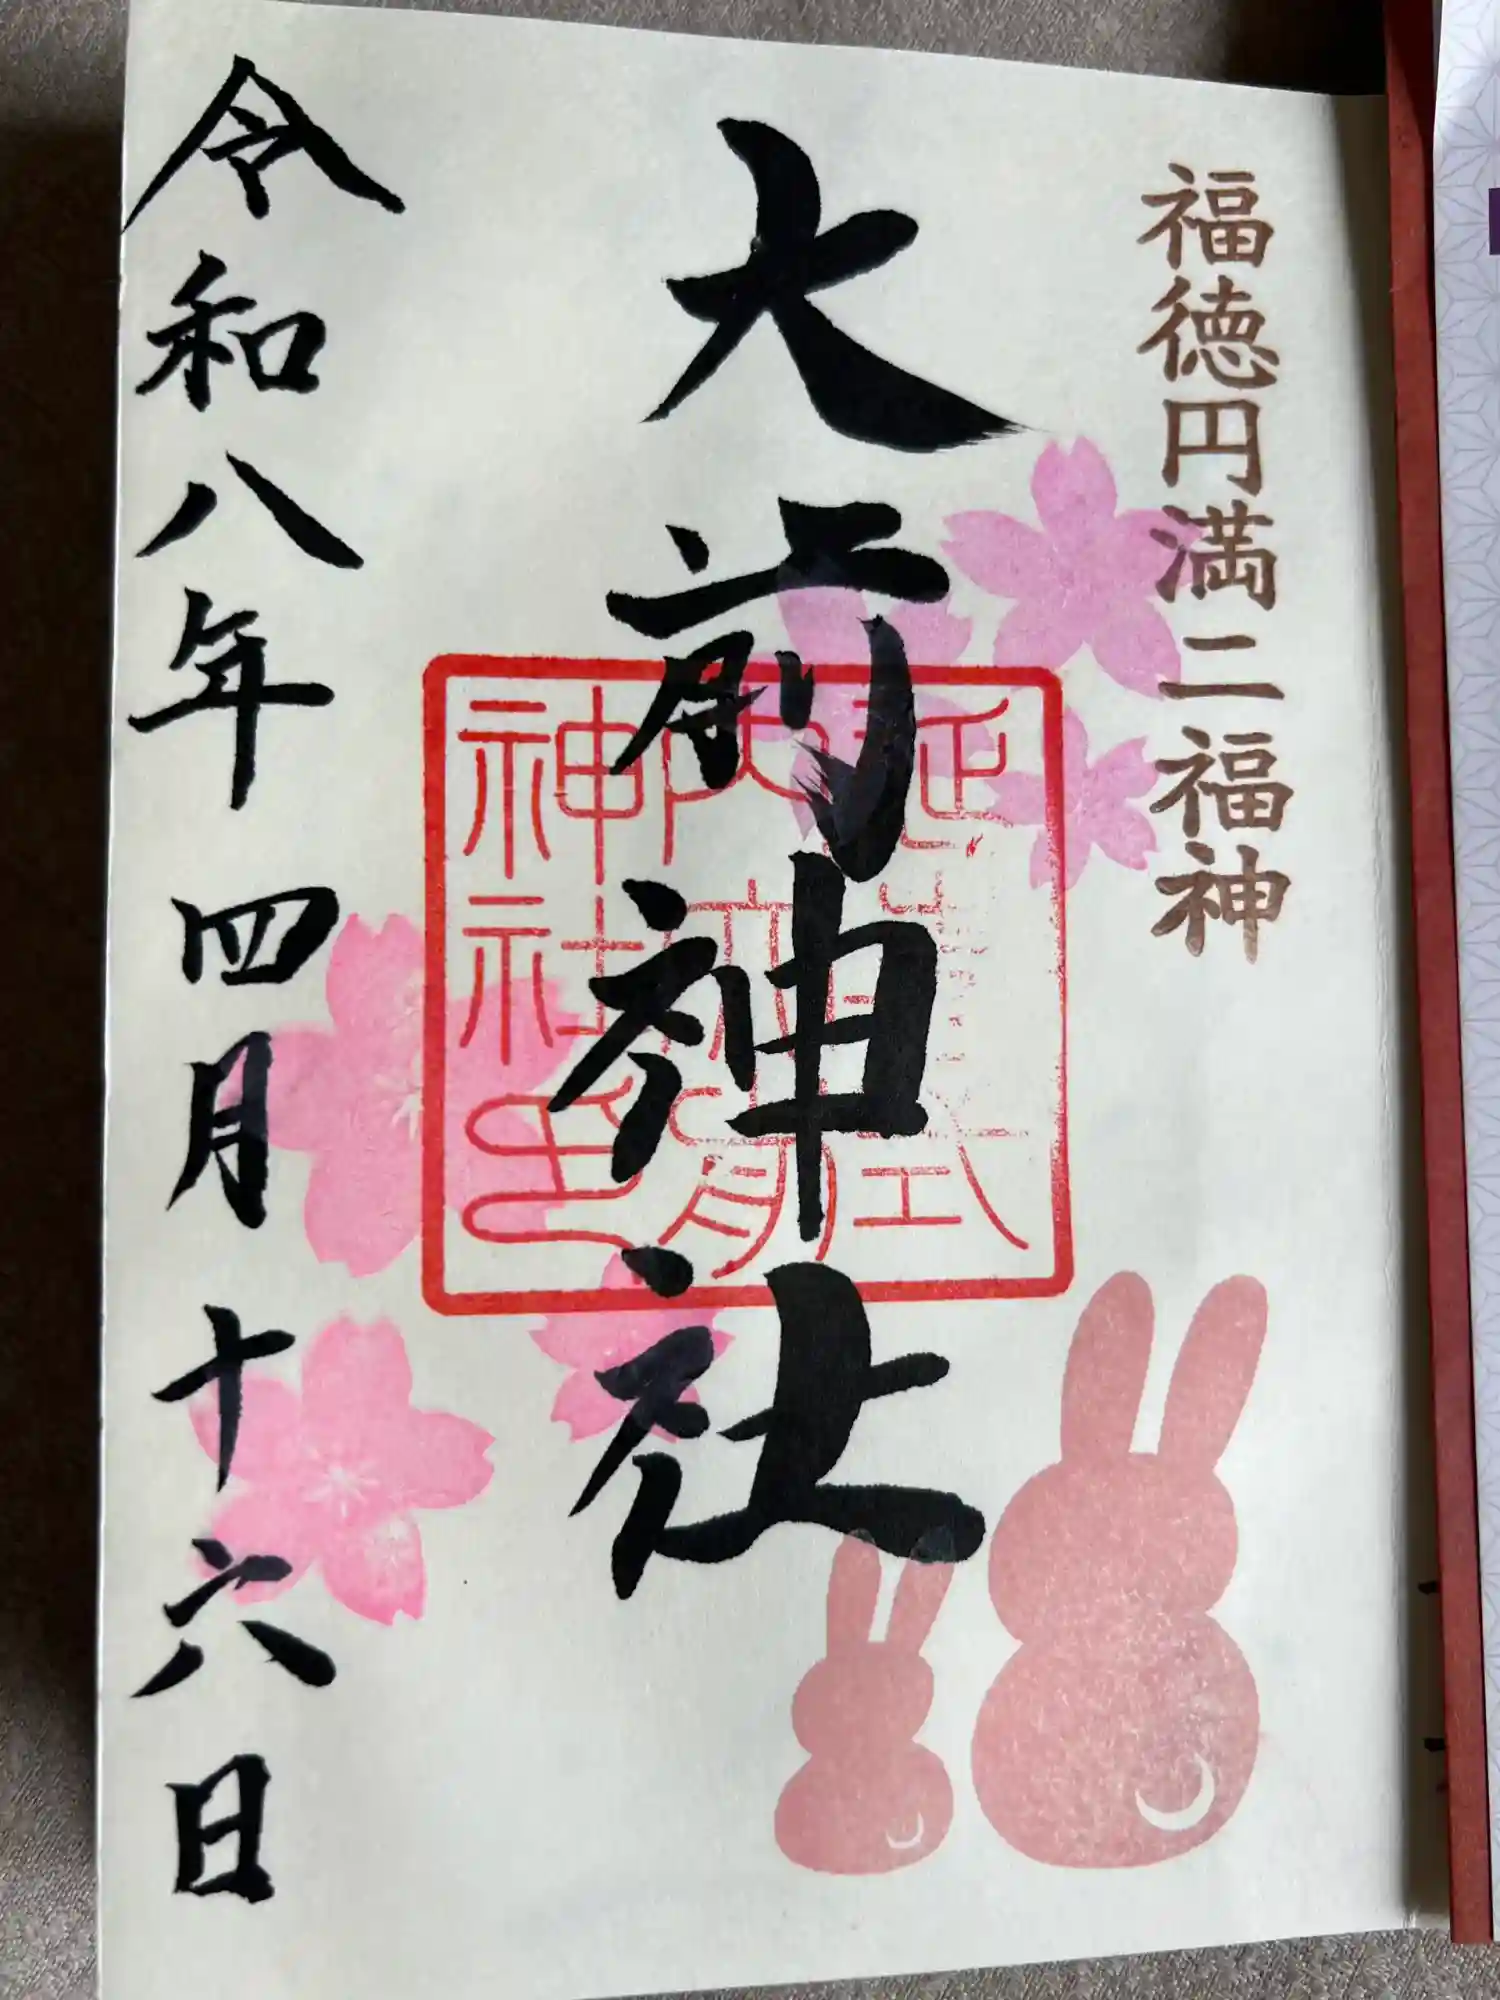 福徳円満二福神
大前神社
延喜式
内大前
神社印
令和八年四月十六日